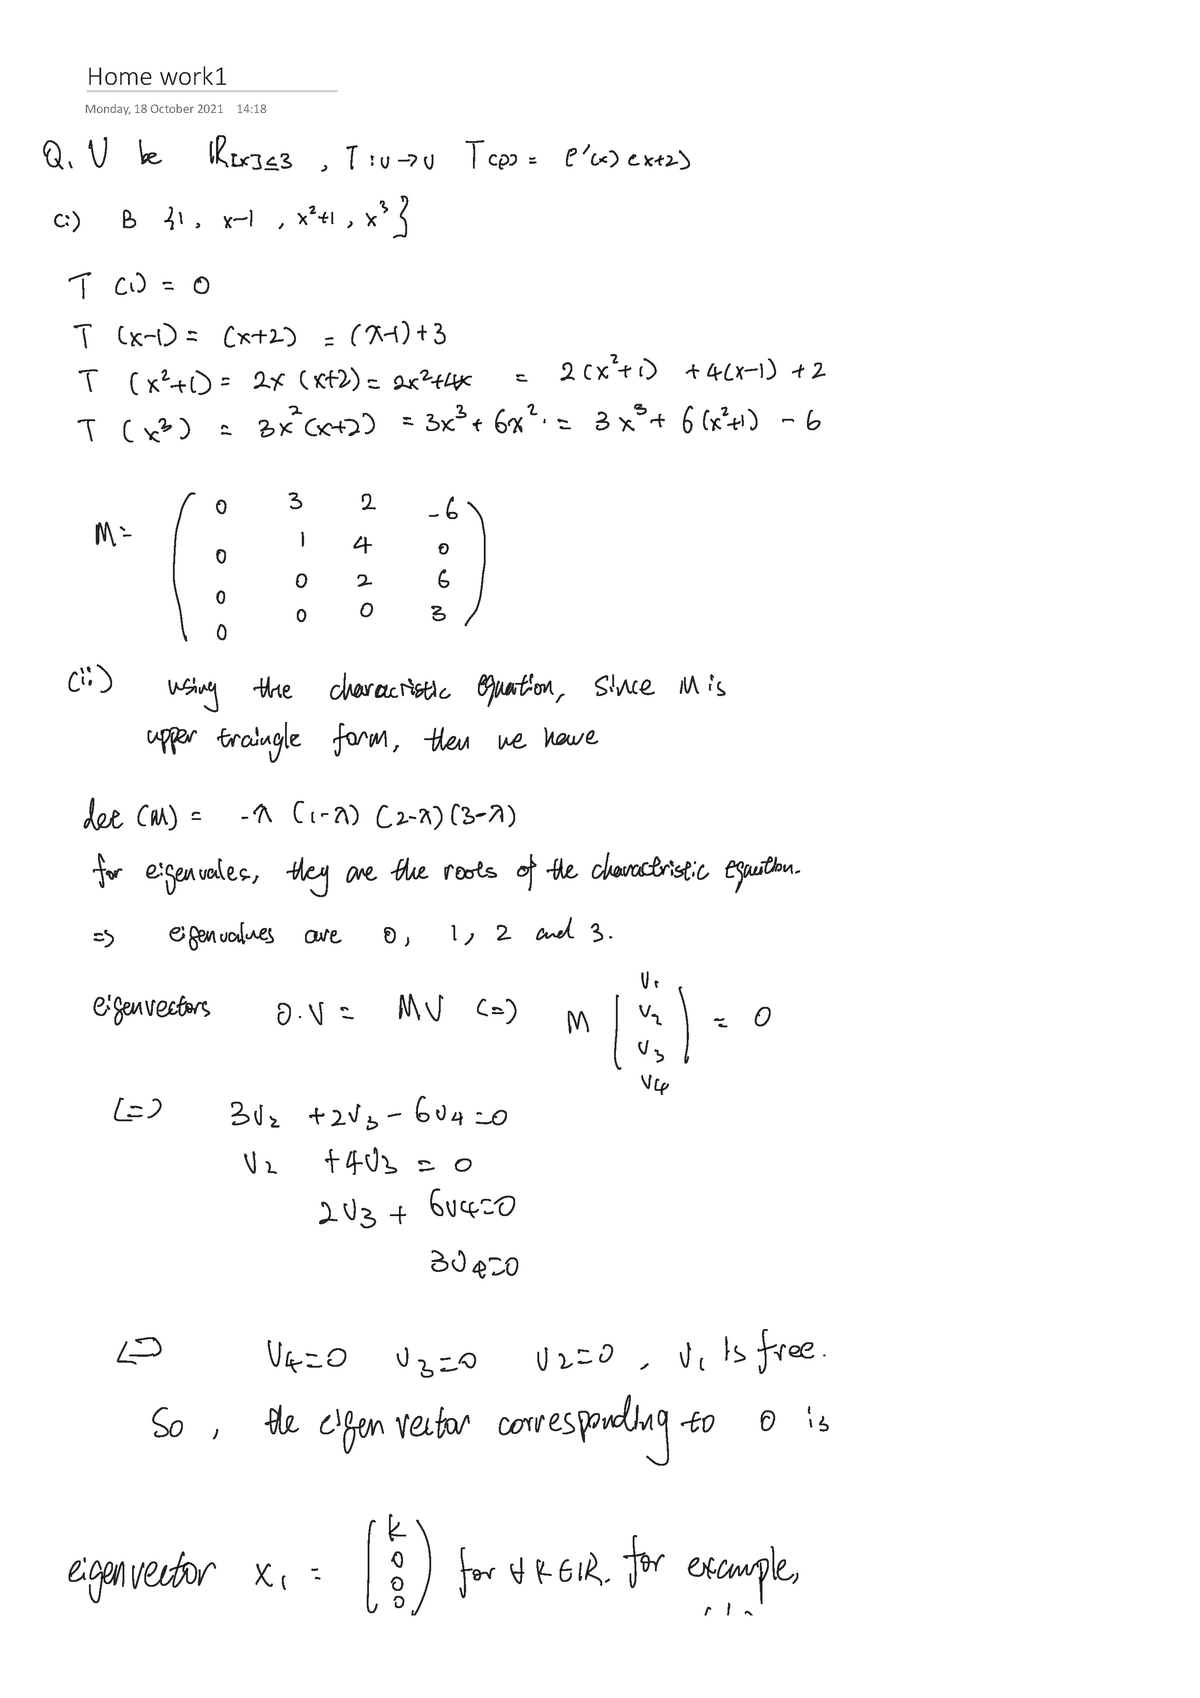 Home work1
Monday, 18 October 2021 14:18
Q. V be ℝ[x]≤3 , T : V → V T(p) = P'(x) (x+2)
(i) B {1, x-1, x²+1, x³}
T (1) = 0
T (x-1) = (x+2) = (x-1)+3
T (x²+1) = 2x (x+2) = 2x²+4x = 2(x²+1) + 4(x-1) + 2
T (x³) = 3x²(x+2) = 3x³ + 6x² = 3x³ + 6(x²+1) - 6
M =
0 3 2 -6
0 1 4 0
0 0 2 6
0 0 0 3
(ii) using the characristic equation, since M is
upper traingle form, then we have
det (M) = -λ (1-λ) (2-λ) (3-λ)
for eigenvales, they are the roots of the charactristic equation.
=> eigenvalues are 0, 1, 2 and 3.
eigenvectors 0.V = MV (=) M (V1 V2 V3 V4) = 0
(=) 3V2 + 2V3 - 6V4 = 0
V2 + 4V3 = 0
2V3 + 6V4 = 0
3V4 = 0
<=> V4=0 V3=0 V2=0 , V1 is free.
So , the eigen vector corresponding to 0 is
eigenvector x1 = (k 0 0 0) for ∀ k ∈ ℝ. for example,